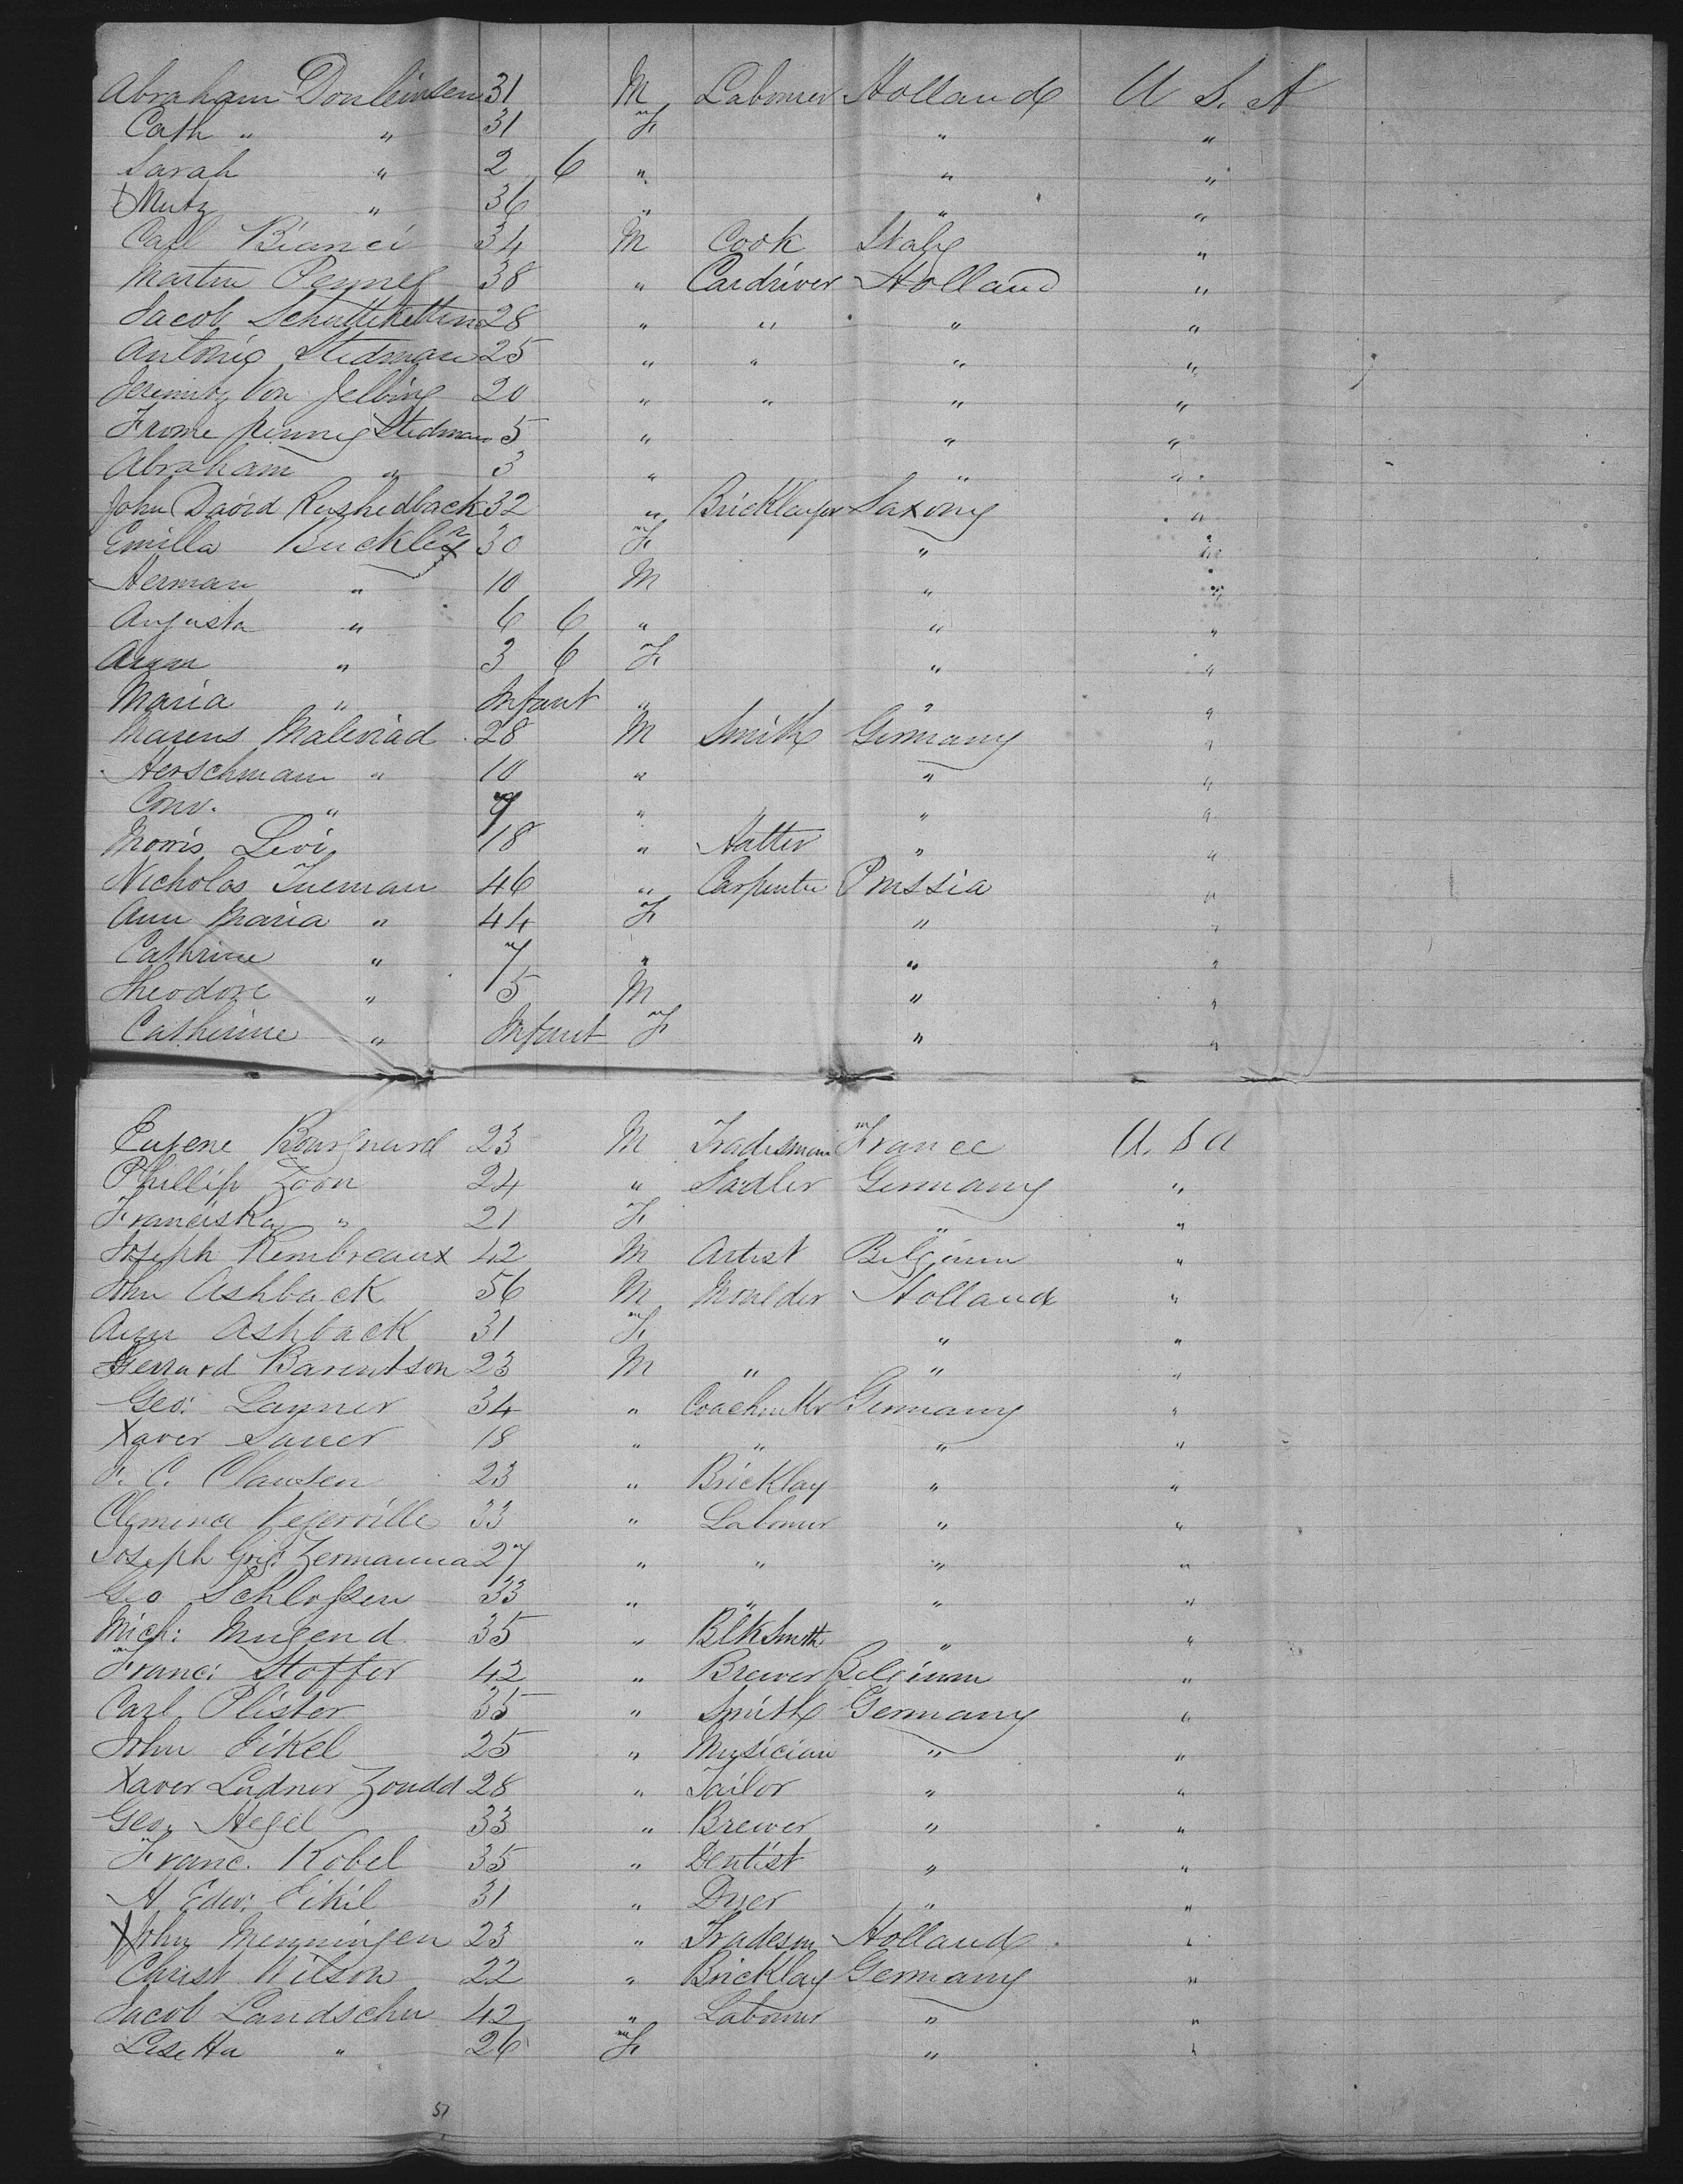 Abraham Donleinsen 31 M Labourer Holland U S. A
Cath " " 31 F " "
Sarah " 2 6 " " "
Mutz " 36 " " "
Carl Bianci 34 M Cook Italy "
Martin Pennel 38 " Cardriver Holland "
Jacob 28 " " " "
Antonie Stedman 25 " " " "
Von Jelbing 20 " " " "
Stedman 5 " " "
Abraham " 3 " " "
John David Rushedback 32 " Bricklayer Saxony "
Emilla 30 F " "
Herman " 10 M " "
Augusta " 6 6 " " "
Anm " 3 6 F " "
Maria " Infant " " "
Marens Maleviad 28 M Smith Germany "
Herschmann " 10 " " "
Conv. " 9 " " "
Morris Levi 18 " Hatter " "
Nicholas Tueman 46 " Carpenter Prussia "
Ann Maria " 44 F " "
Cathrine " 7 " " "
Theodore " 5 M " "
Catherine " Infant F " "
Eugene Bourgnard 23 M Tradesman France U. S A
Phillip Zoon 24 " Sadler Germany "
Franciska " 21 F " "
Joseph Rembreaux 42 M Artist Belgium "
John Ashback 56 M Moulder Holland "
Ann Ashback 31 F " "
Gerrard Barentson 23 M " " "
Geo: Layner 34 " Coachmkr Germany "
Xaver Sauer 18 " " " "
F. C. Clausen 23 " Bricklay " "
Clemence Vegerville 33 " Labourer " "
Joseph Grig: Zermanna 27 " " " "
Geo Schlossen 33 " " " "
Mich: Mugend 35 " Blksmith " "
Franc: Stoffer 42 " Brewer Belgium "
Carl Plister 35 " Smith Germany "
John Eikel 25 " Musician " "
Xaver Ladner Zoudd 28 " Tailor " "
Geo. Hegel 33 " Brewer " "
Franc. Kobel 35 " Dentist " "
H Edw: Eikil 31 " Dyer " "
John Menningen 23 " Tradesm Holland "
Christ Wilson 22 " Bricklay Germany "
Jacob Landscher 42 " Labourer " "
Lisetta " 26 F " "
51